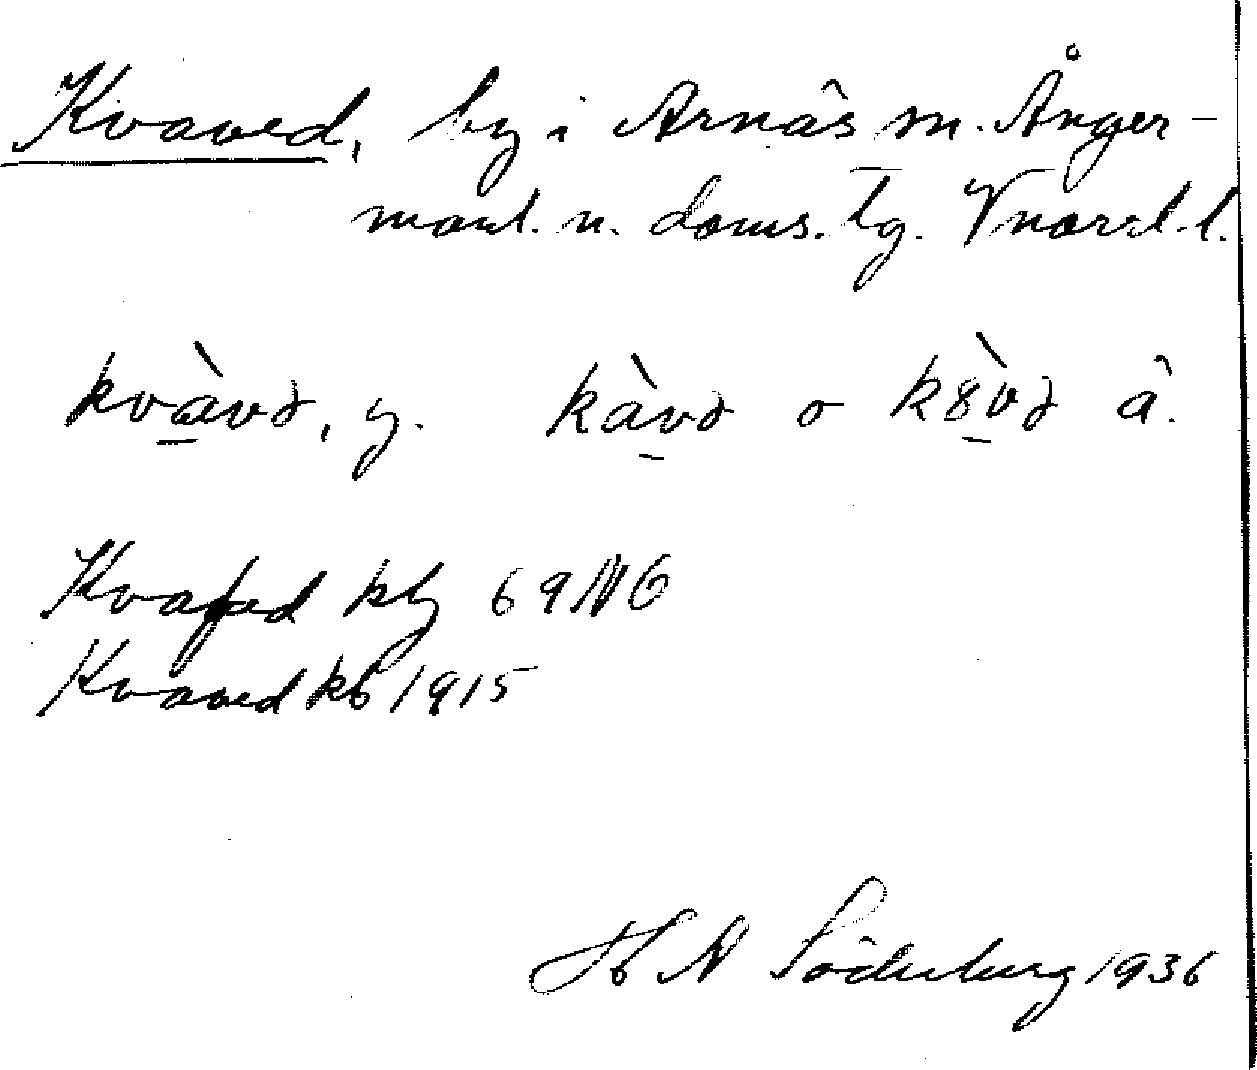 Kvaved, by i Arnäs sn. Ånger-
manl. n. doms. tg. Vnorrl. l.
kvàvə, y. kàvə o k8̀və ä.
Kvafved kby 69 NG
Kvaved kb 1915
H N Söderberg 1936